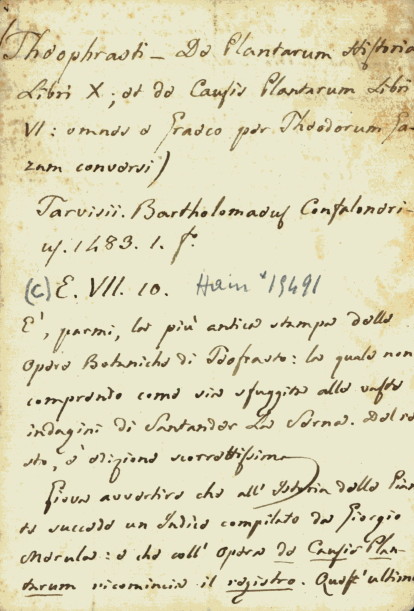 (Theophrasti — De Plantarum Historia
Libri X; et de Causis Plantarum Libri
VI: omnes e Graeco per Theodorum Ga-
zam conversi)
Tarvisii. Bartholomaeus Confaloneri-
us. 1483. 1. f.º
(C) E. VII. 10. Hain * 15491
E', parmi, la più antica stampa delle
Opere Botaniche di Teofrasto: la quale non
comprendo come sia sfuggita alle vaste
indagini di Santander La Serna. Del re-
sto, è edizione scorrettissima.
Giova avvertire che all' Istoria delle Pian-
te succede un Indice compilato da Giorgio
Merula: e che coll' Opera de Causis Plan-
tarum ricomincia il registro. Quest' ultima